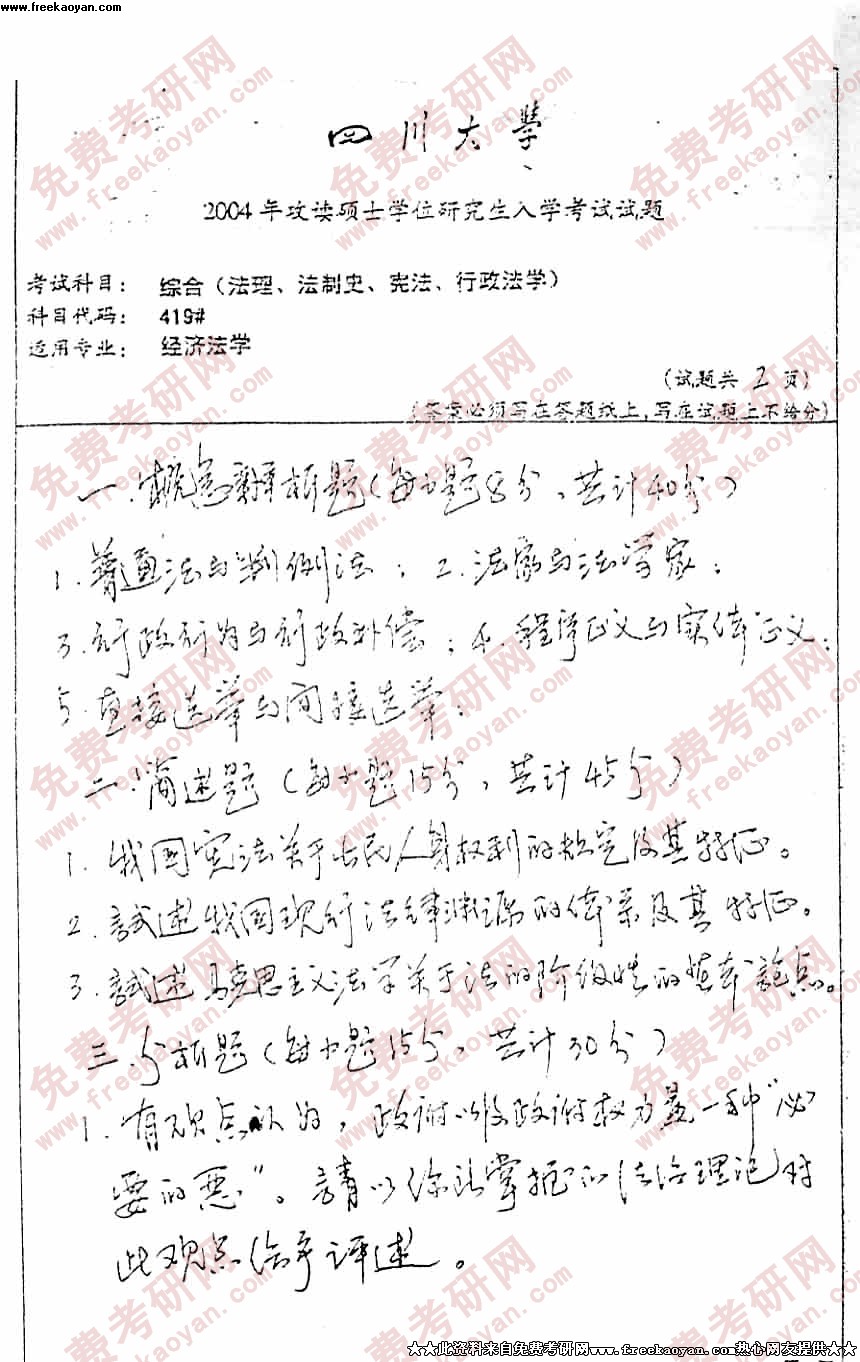 www.freekaoyan.com
四川大學
2004年攻读硕士学位研究生入学考试试题
考试科目： 综合（法理、法制史、宪法、行政法学）
科目代码： 419#
适用专业： 经济法学
（试题共 2 页）
（答案必须写在答题纸上，写在试题上不给分）
一.概念辨析题（每小题8分，共计40分）
1.普通法与判例法；2.法家与法学家；
3.行政行为与行政补偿；4.程序正义与实体正义；
5.直接选举与间接选举；
二.简述题（每小题15分，共计45分）
1.我国宪法关于公民人身权利的规定及其特征。
2.試述我国现行法律渊源的体系及其特征。
3.試述马克思主义法学关于法的阶级性的基本論点。
三.分析题（每小题15分，共计30分）
1.有观点认为，政府以及政府权力是一种"必
要的恶"。請以你所掌握的法治理论对
此观点给予评述。
免费考研网
www.freekaoyan.com
★★此资料来自免费考研网www.freekaoyan.com热心网友提供★★